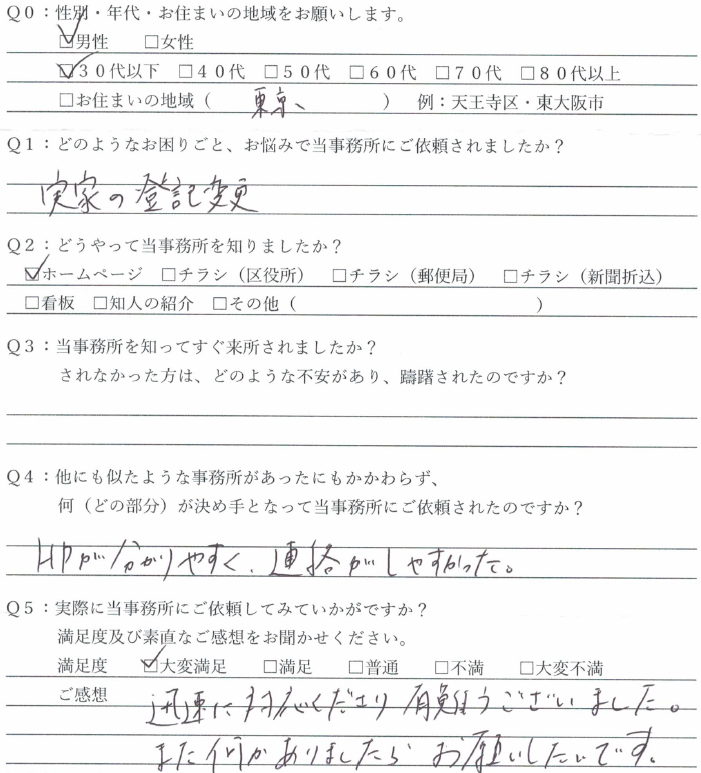 Q0：性別・年代・お住まいの地域をお願いします。
☑男性　□女性
☑30代以下　□40代　□50代　□60代　□70代　□80代以上
□お住まいの地域（　東京、　）　例：天王寺区・東大阪市
Q1：どのようなお困りごと、お悩みで当事務所にご依頼されましたか？
実家の登記変更
Q2：どうやって当事務所を知りましたか？
☑ホームページ　□チラシ（区役所）　□チラシ（郵便局）　□チラシ（新聞折込）
□看板　□知人の紹介　□その他（　　　）
Q3：当事務所を知ってすぐ来所されましたか？
されなかった方は、どのような不安があり、躊躇されたのですか？
Q4：他にも似たような事務所があったにもかかわらず、
何（どの部分）が決め手となって当事務所にご依頼されたのですか？
HPが分かりやすく、連絡がしやすかった。
Q5：実際に当事務所にご依頼してみていかがですか？
満足度及び素直なご感想をお聞かせください。
満足度　☑大変満足　□満足　□普通　□不満　□大変不満
ご感想　迅速に対応くださり有難うございました。
また何かありましたらお願いしたいです。